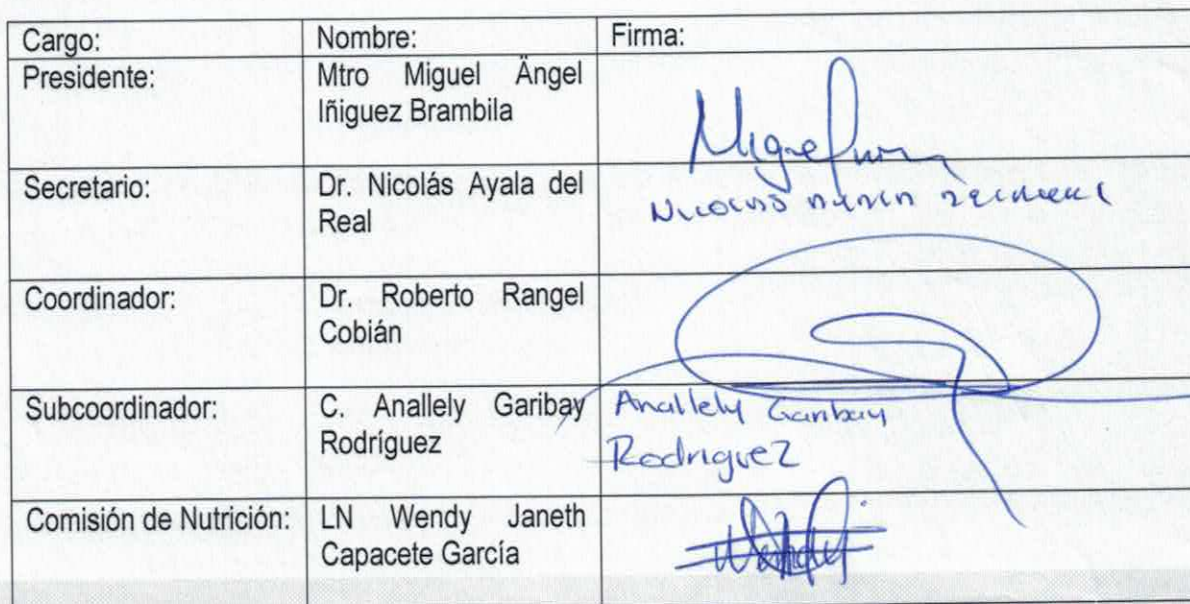 Cargo: Nombre: Firma:
Presidente: Mtro Miguel Ängel
Iñiguez Brambila
Secretario: Dr. Nicolás Ayala del
Real
Coordinador: Dr. Roberto Rangel
Cobián
Subcoordinador: C. Anallely Garibay Anallely Garibay
Rodríguez Rodriguez
Comisión de Nutrición: LN Wendy Janeth
Capacete García